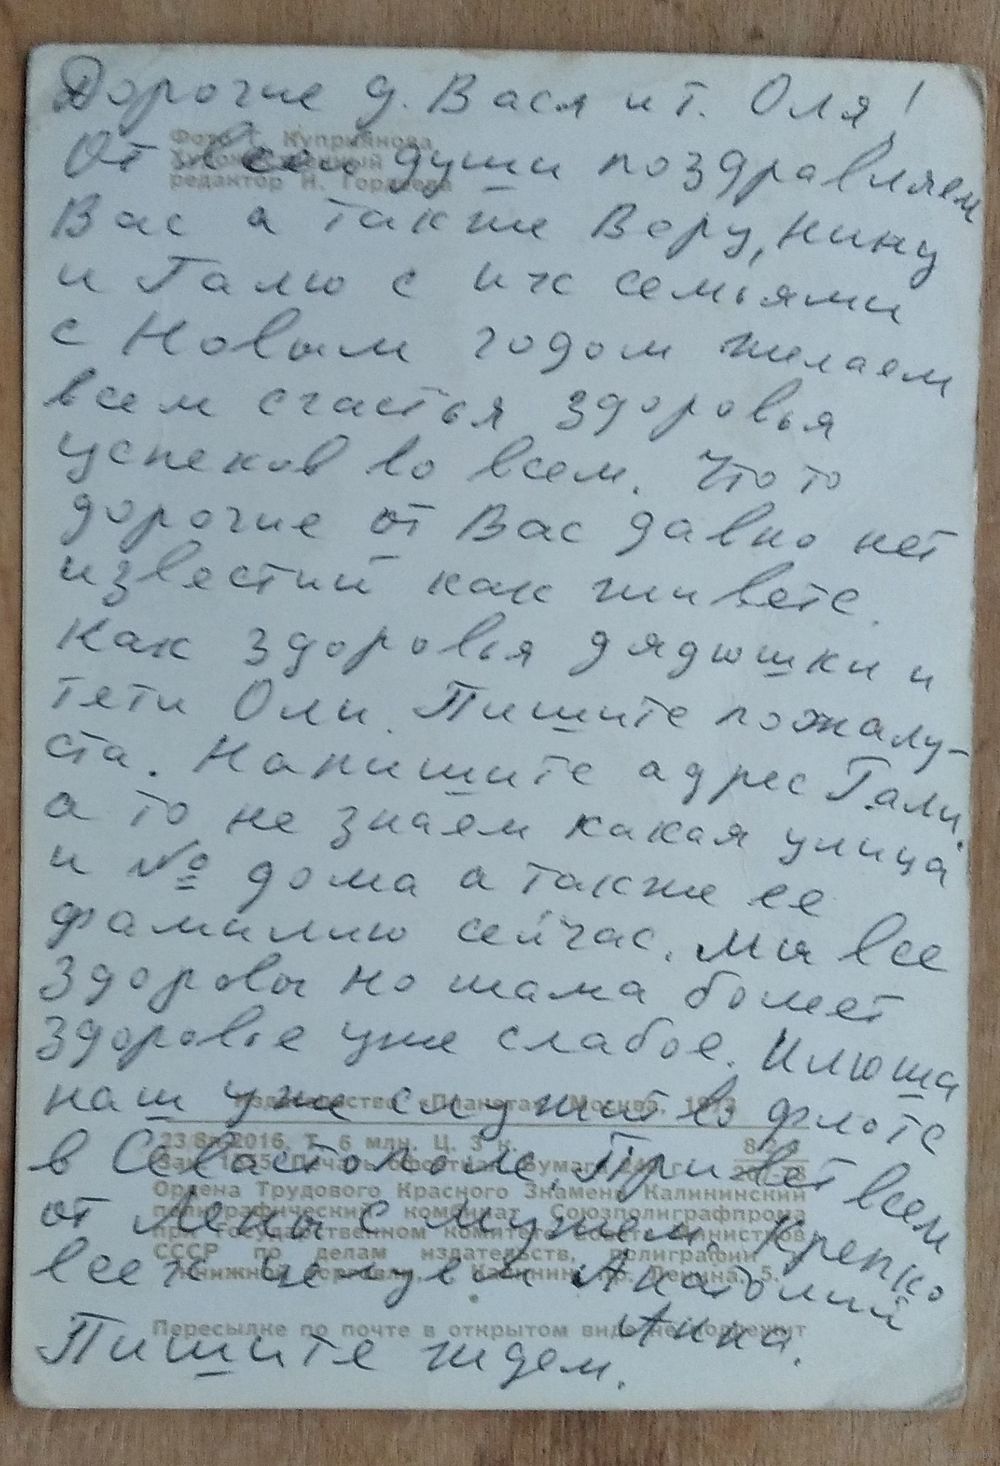 Дорогие д. Вася и т. Оля!
Фото Г. Куприянова
От всей души поздравляем
Художественный
редактор Н. Гордеева
Вас а также Веру, Нину
и Галю с их семьями
с Новым годом желаем
всем счастья здоровья
успехов во всем. Что то
дорогие от Вас давно нет
известий как живете.
Как здоровья дядюшки и
тети Оли. Пишите пожалу-
ста. Напишите адрес Гали,
а то не знаем какая улица
и № дома а также ее
фамилию сейчас. Мы все
здоровы но мама болеет
здоровье уже слабое. Илюша
наш уже служит во флоте
Издательство «Планета», Москва, 1973
в Севастополе. Привет всем
Печать офсетная. Бумага
Ордена Трудового Красного Знамени Калининский
от Лены с мужем. Крепко
полиграфический комбинат Союзполиграфпрома
при Государственном комитете Совета Министров
СССР по делам издательств, полиграфии
всех целуем Анатолий
и книжной торговли. Калинин, пр. Ленина, 5.
Анна.
Пересылке по почте в открытом виде не подлежит
Пишите ждем.